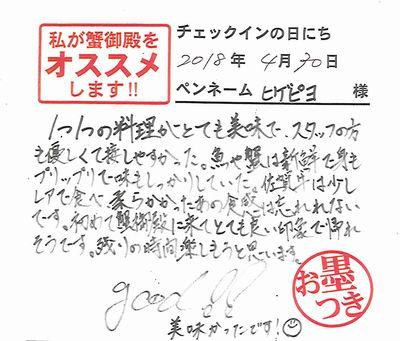 私が蟹御殿を
オススメ
します!!
チェックインの日にち
2018年 4月30日
ペンネーム ヒゲピヨ 様
1つ1つの料理がとても美味で、スタッフの方
も優しくて接しやすかった。魚や蟹は新鮮で身も
プリップリで味もしっかりしていた。佐賀牛は少し
レアで食べ、柔らかかったあの食感は忘れれない
です。初めて蟹御殿に来てとても良い印象で帰れ
そうです。残りの時間楽しもうと思います。
good!!
美味かったです!
お墨
つき